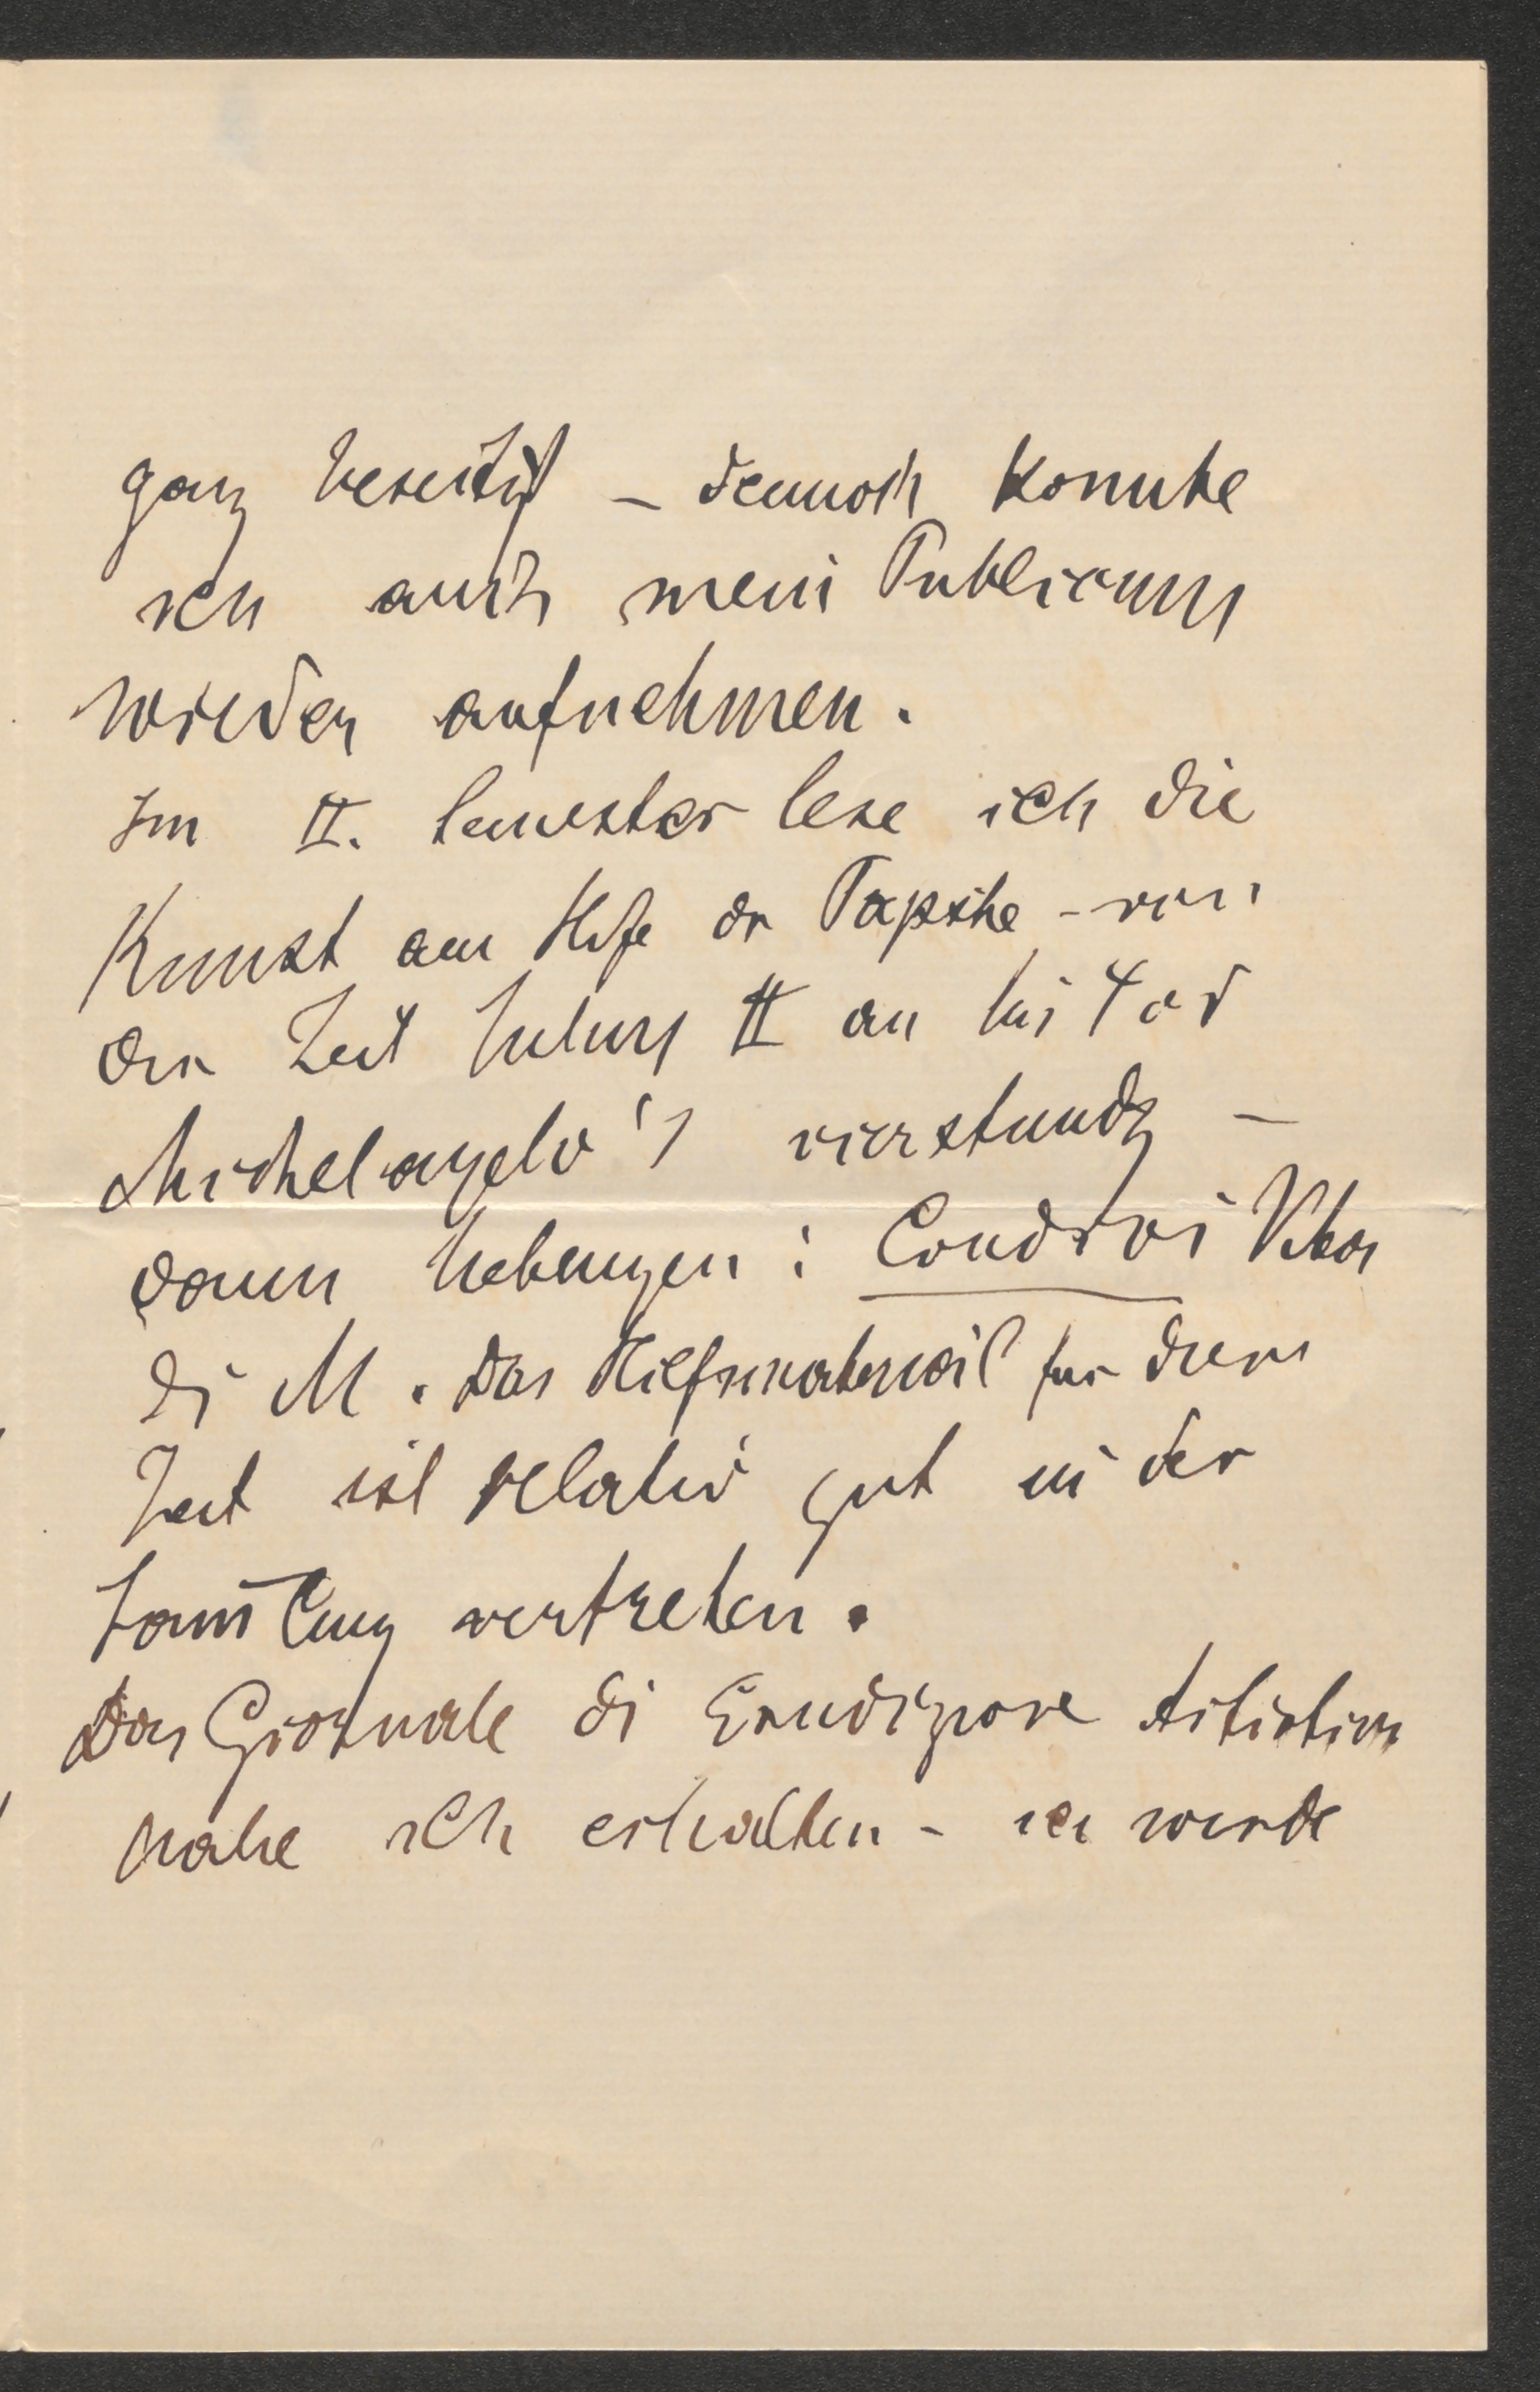 ganz beseitigt – dennoch konnte
ich auch mein Publicum
wieder aufnehmen.
Im II. Semester lese ich die
Kunst am Hofe der Päpste – von
der Zeit Julius II an bis Tod
Michelangelo's vierstündg –
dann Uebungen: Condivi Vita
di M. Das Hilfsmaterial für diese
Zeit ist relativ gut in der
Sam̄lung vertreten.
Das Giornale di Erudizione Artistica
habe ich erhalten – ich werde